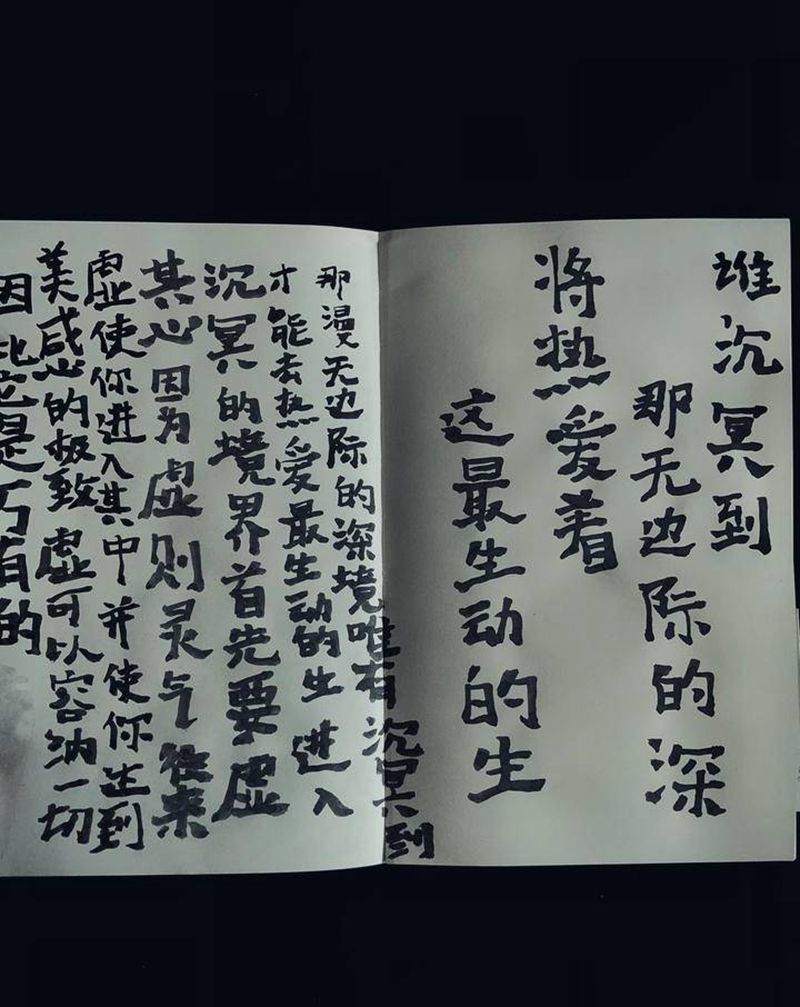 谁沉冥到
那无边际的深
将热爱着
这最生动的生
那漫无边际的深境唯有沉冥到
才能去热爱最生动的生 进入
沉冥的境界首先要虚
其心因为虚则灵气往来
虚使你进入其中 并使你达到
美感的极致 虚可以容纳一切
因此它是万有的